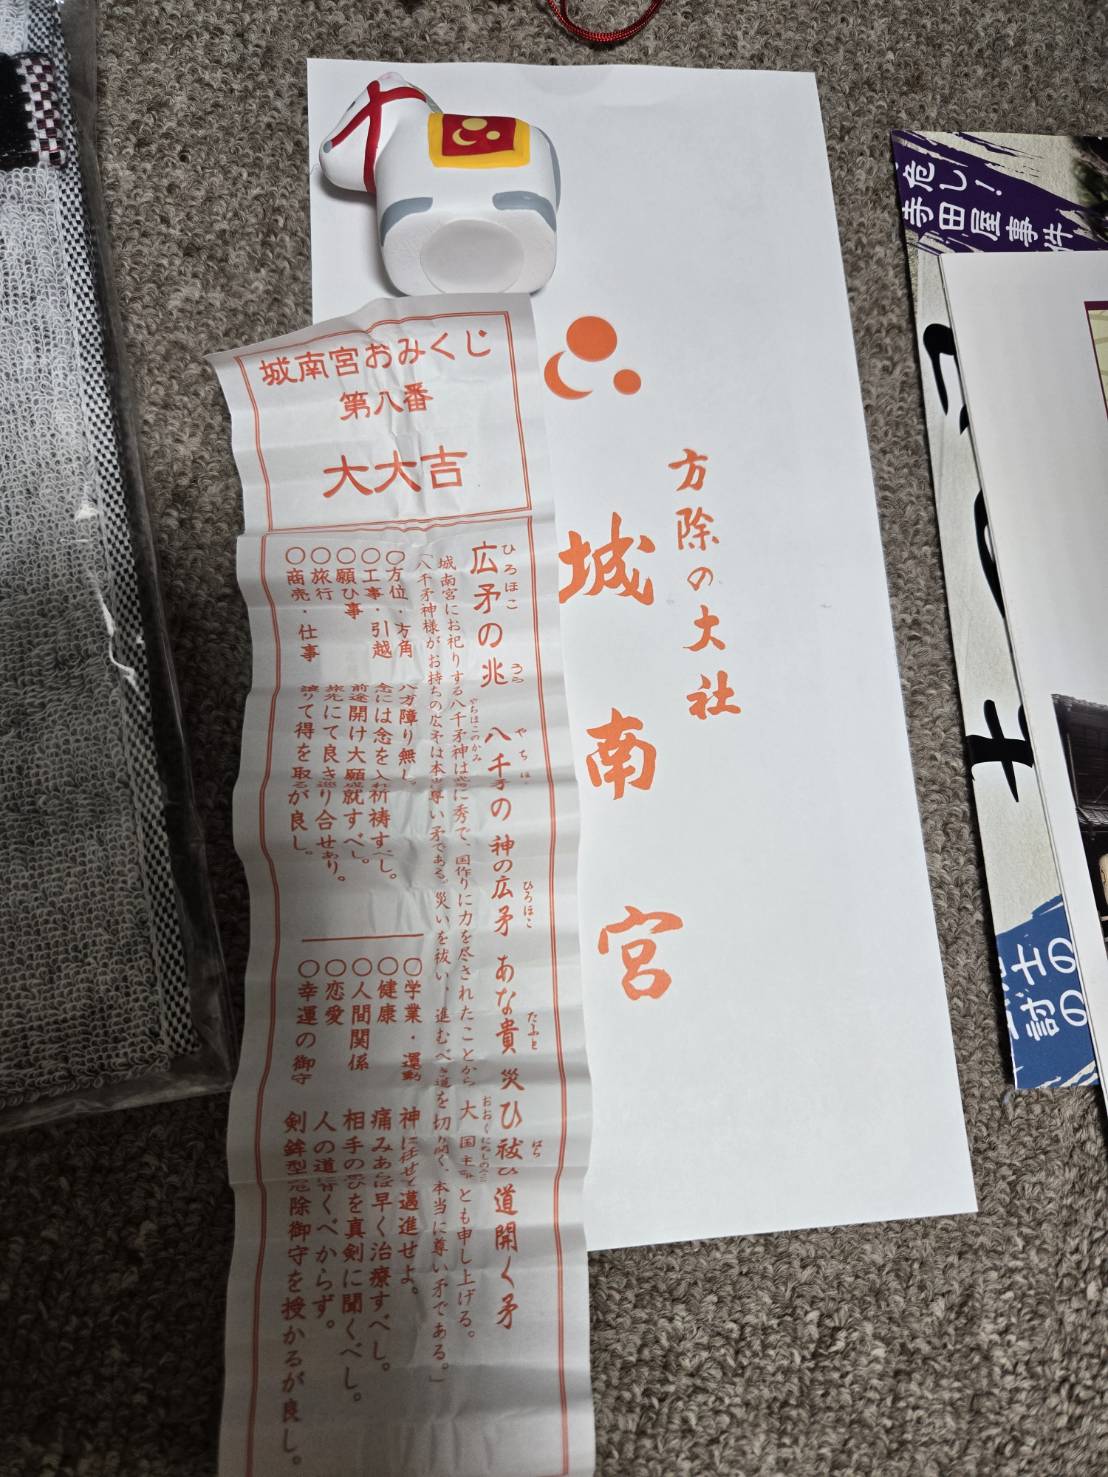 城南宮おみくじ
第八番
大大吉
広矛の兆
ひろほこ
うら
八千矛の神の広矛 あな貴 災ひ祓ひ道開く矛
やちほこ
ひろほこ
たふと
はら
城南宮にお祀りする八千矛神は武に秀で、国作りに力を尽されたことから 大国主命とも申し上げる。
やちほこのかみ
八千矛神様がお持ちの広矛は本当に尊い矛である。災いを祓い、進むべき道を切り開く、本当に尊い矛である。」
〇方位・方角 八方障り無し。
〇工事・引越 念には念を入れ祈祷すべし。
〇願ひ事 前途開け大願成就すべし。
〇旅行 旅先にて良き巡り合せあり。
〇商売・仕事 譲りて得を取るが良し。
〇学業・運動 神に任せて邁進せよ。
〇健康 痛みあらば早く治療すべし。
〇人間関係 相手の言ひを真剣に聞くべし。
〇恋愛 人の道行くべからず。
〇幸運の御守 剣鉾型厄除御守を授かるが良し。
方除の大社
城南宮
危し!
寺田屋事件